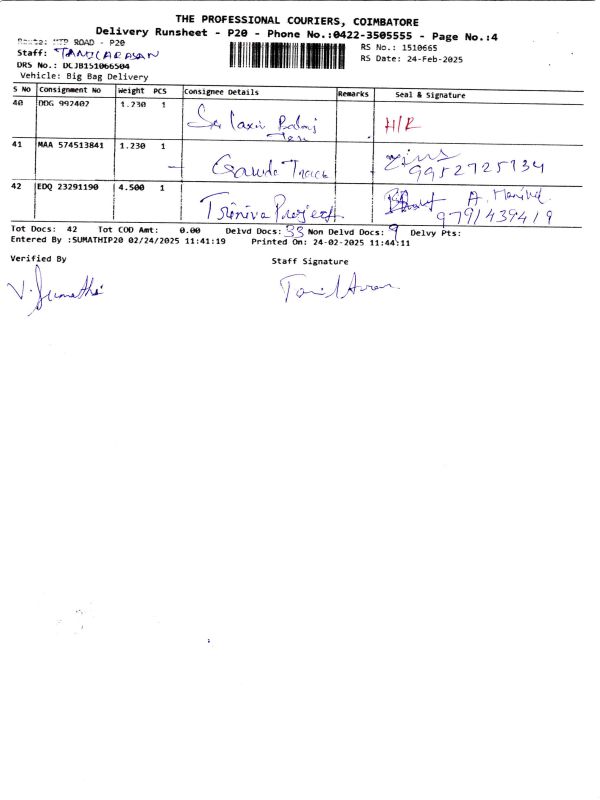 THE PROFESSIONAL COURIERS, COIMBATORE
Delivery Runsheet - P20 - Phone No.:0422-3505555 - Page No.:4
Route: MTP ROAD - P20
RS No.: 1510665
Staff: TAMILARASAN
RS Date: 24-Feb-2025
DRS No.: DCJB151066504
Vehicle: Big Bag Delivery
S No Consignment No Weight PCS Consignee Details Remarks Seal & Signature
40 DDG 992402 1.230 1 H/R
41 MAA 574513841 1.230 1 9952725134
42 EDQ 23291190 4.500 1 Project 9791439419
Tot Docs: 42 Tot COD Amt: 0.00 Delvd Docs: 33 Non Delvd Docs: 9 Delvy Pts:
Entered By :SUMATHIP20 02/24/2025 11:41:19 Printed On: 24-02-2025 11:44:11
Verified By Staff Signature
V. Sumathi